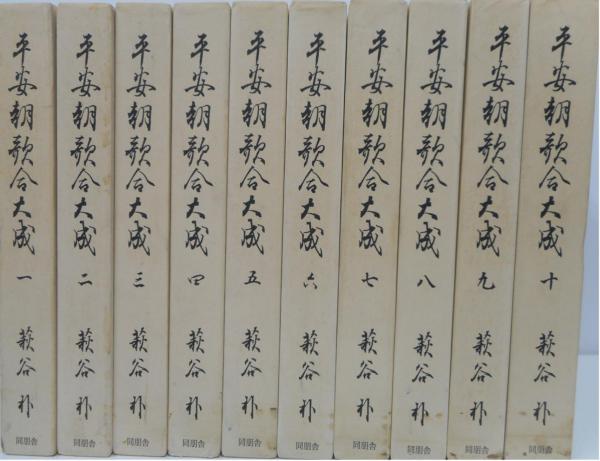 平安朝歌合大成 一 萩谷朴 同朋舎
平安朝歌合大成 二 萩谷朴 同朋舎
平安朝歌合大成 三 萩谷朴 同朋舎
平安朝歌合大成 四 萩谷朴 同朋舎
平安朝歌合大成 五 萩谷朴 同朋舎
平安朝歌合大成 六 萩谷朴 同朋舎
平安朝歌合大成 七 萩谷朴 同朋舎
平安朝歌合大成 八 萩谷朴 同朋舎
平安朝歌合大成 九 萩谷朴 同朋舎
平安朝歌合大成 十 萩谷朴 同朋舎